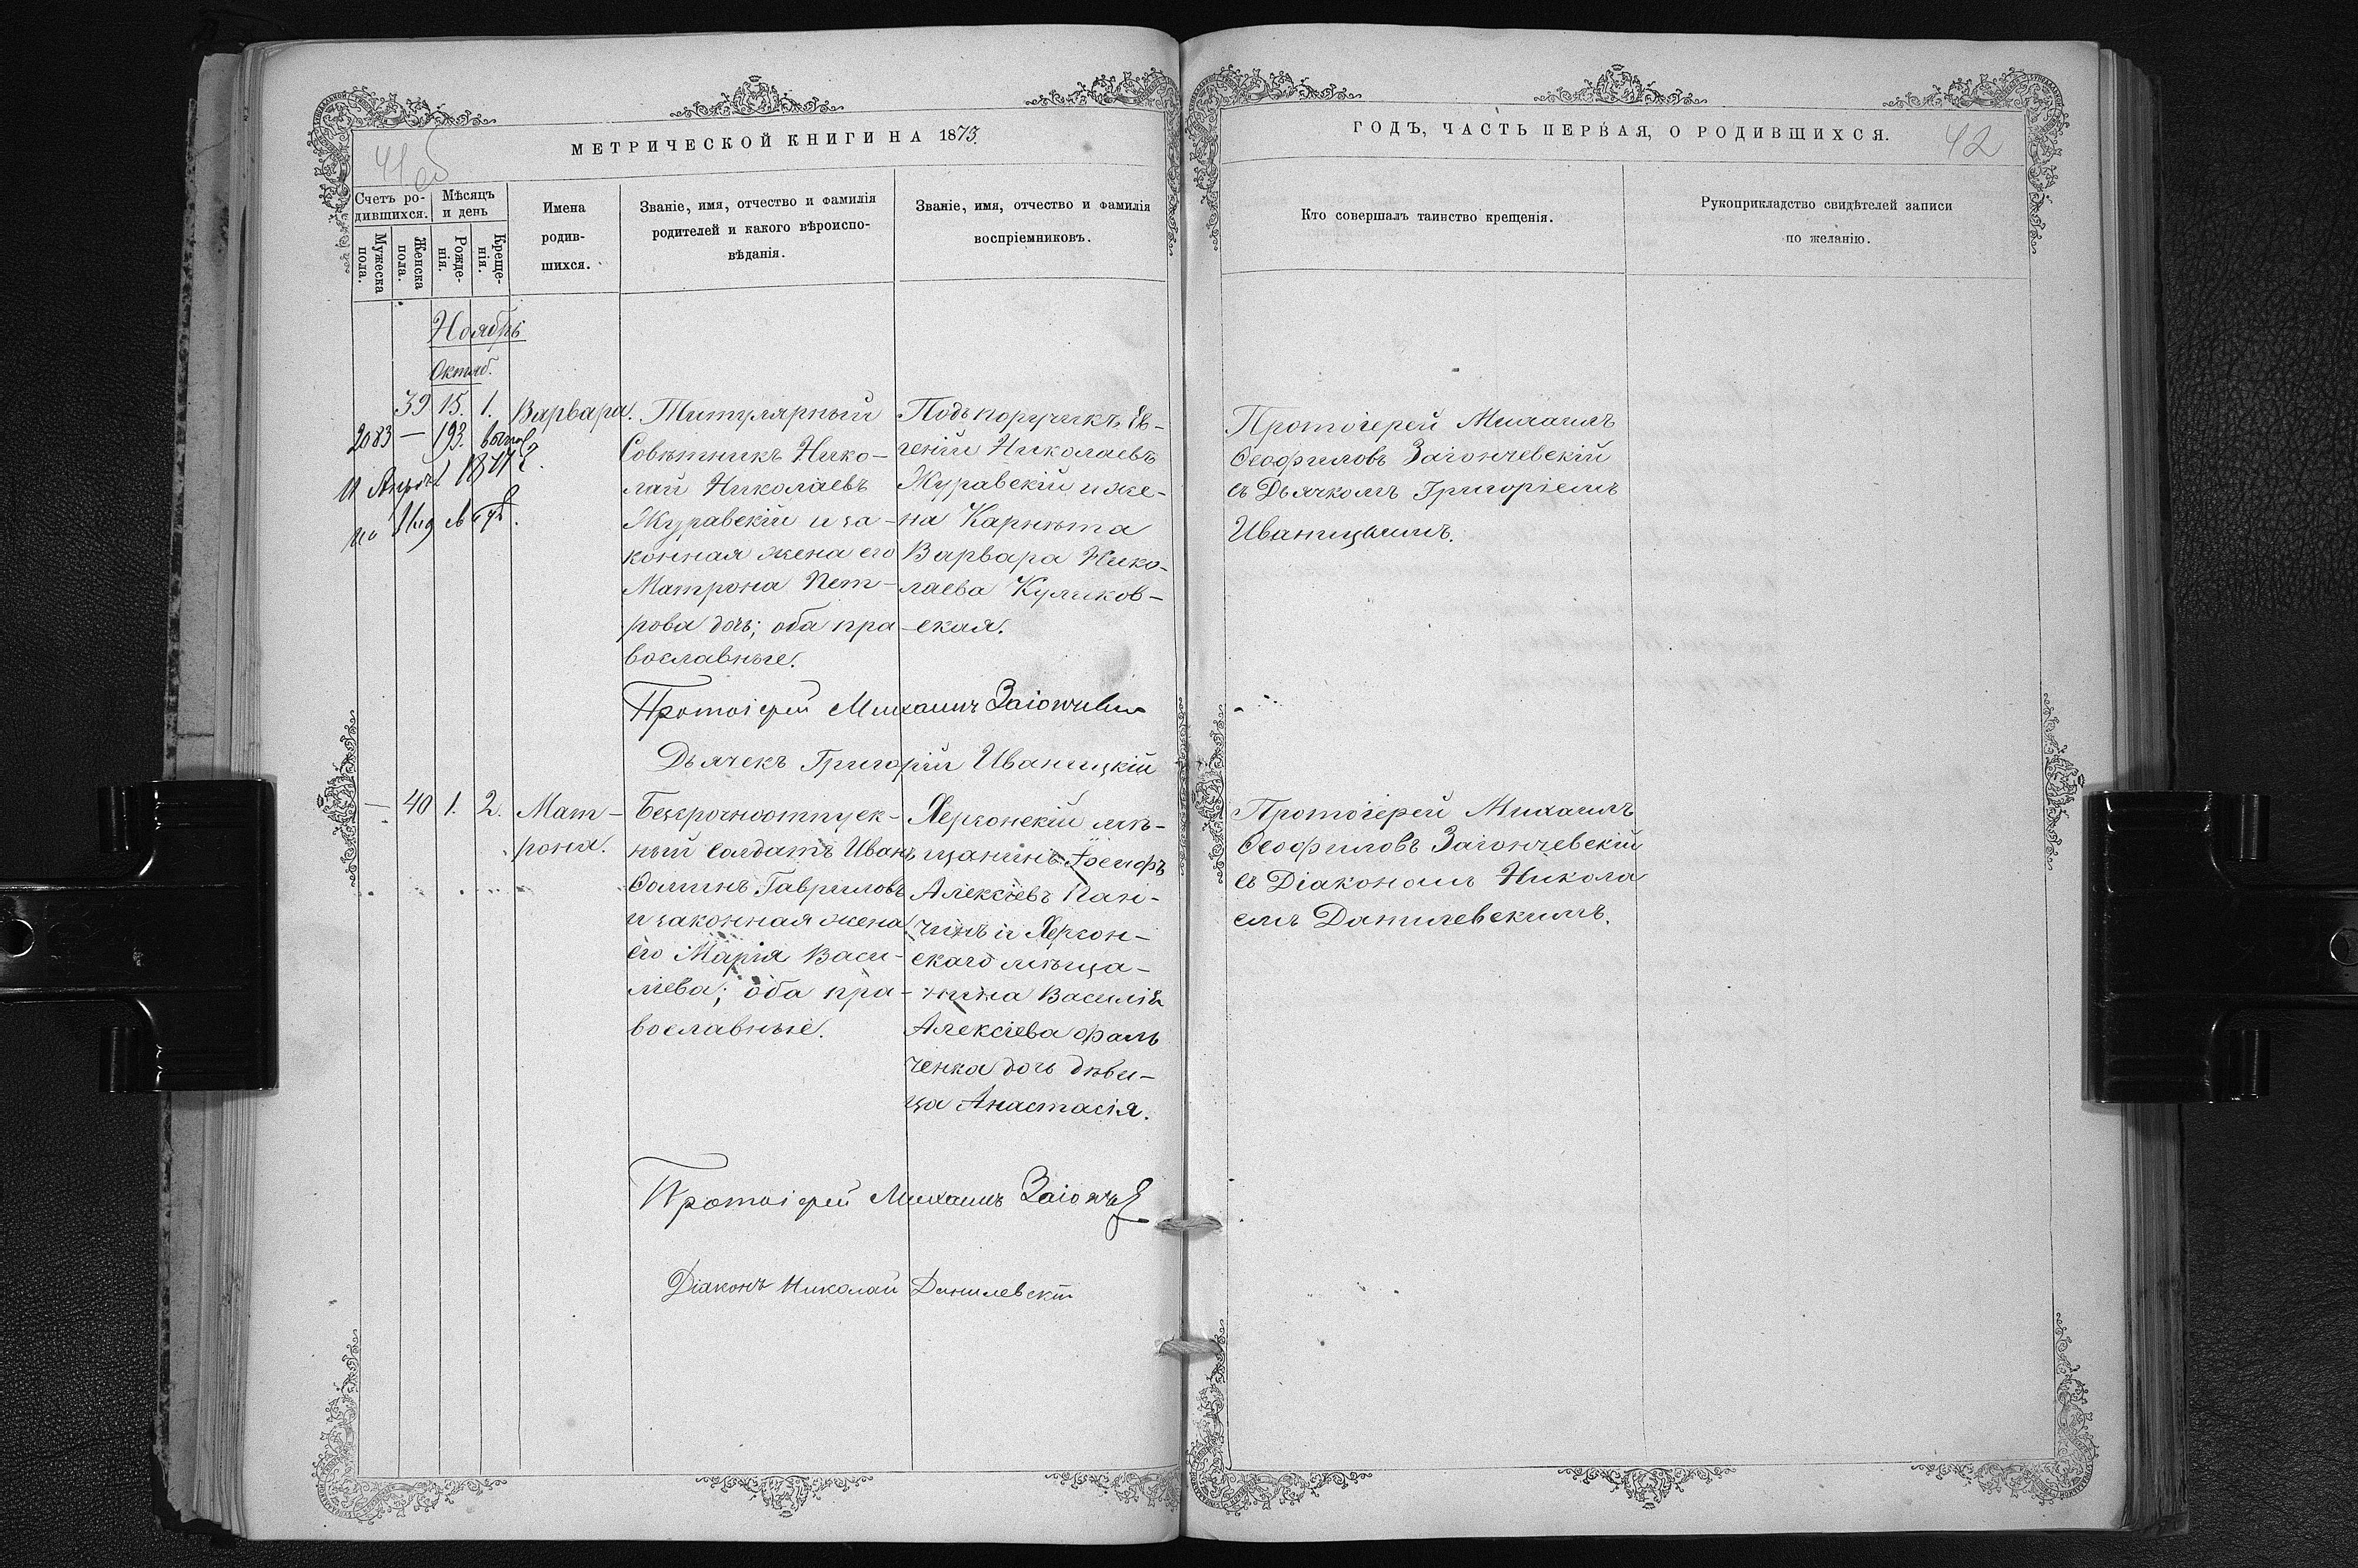 МЕТРИЧЕСКОЙ КНИГИ НА 1875.
41об
Счетъ ро-
дившихся.
Мужеска
пола.
Женска
пола.
Мѣсяцъ
и день
Рожде-
нія.
Креще-
нія.
Имена
родив-
шихся.
Званіе, имя, отчество и фамилія
родителей и какого вѣроиспо-
вѣданія.
Званіе, имя, отчество и фамилія
воспріемниковъ.
Ноябрь
Октяб.
39 15. 1. Варвара.
2083 — 193.
Титулярный
Совѣтникъ Нико-
лай Николаевъ
Журавскій и за-
конная жена его
Матрона Пет-
рова дочь; оба пра-
вославные.
Подъпоручикъ Ев-
геній Николаевъ
Журавскій и же-
на Карнета
Варвара Нико-
лаева Куликов-
ская.
Протоіерей Михаилъ
Дьячекъ Григорій Иваницкій
— 40 1. 2. Мат-
рона.
Безсрочноотпуск-
ный солдатъ Иванъ
Фоминъ Гавриловъ
и законная жена
его Марія Васи-
лева; оба пра-
вославные.
Херсонскій мѣ-
щанинъ Іосифъ
Алексіевъ Пан-
чинъ и Херсон-
скаго мѣща-
нина Василія
Алексіева Фаль
ченка дочь дѣви-
ца Анастасія.
Протоіерей Михаилъ
Діаконъ Николай Данилевскій
ГОДЪ, ЧАСТЬ ПЕРВАЯ, О РОДИВШИХСЯ.
42
Кто совершалъ таинство крещенія.
Рукоприкладство свидѣтелей записи
по желанію.
Протоіерей Михаилъ
Феофиловъ Заіончевскій
съ Дьячкомъ Григоріемъ
Иваницкимъ.
Протоіерей Михаилъ
Феофиловъ Заіончевскій
съ Діакономъ Никола
емъ Данилевскимъ.